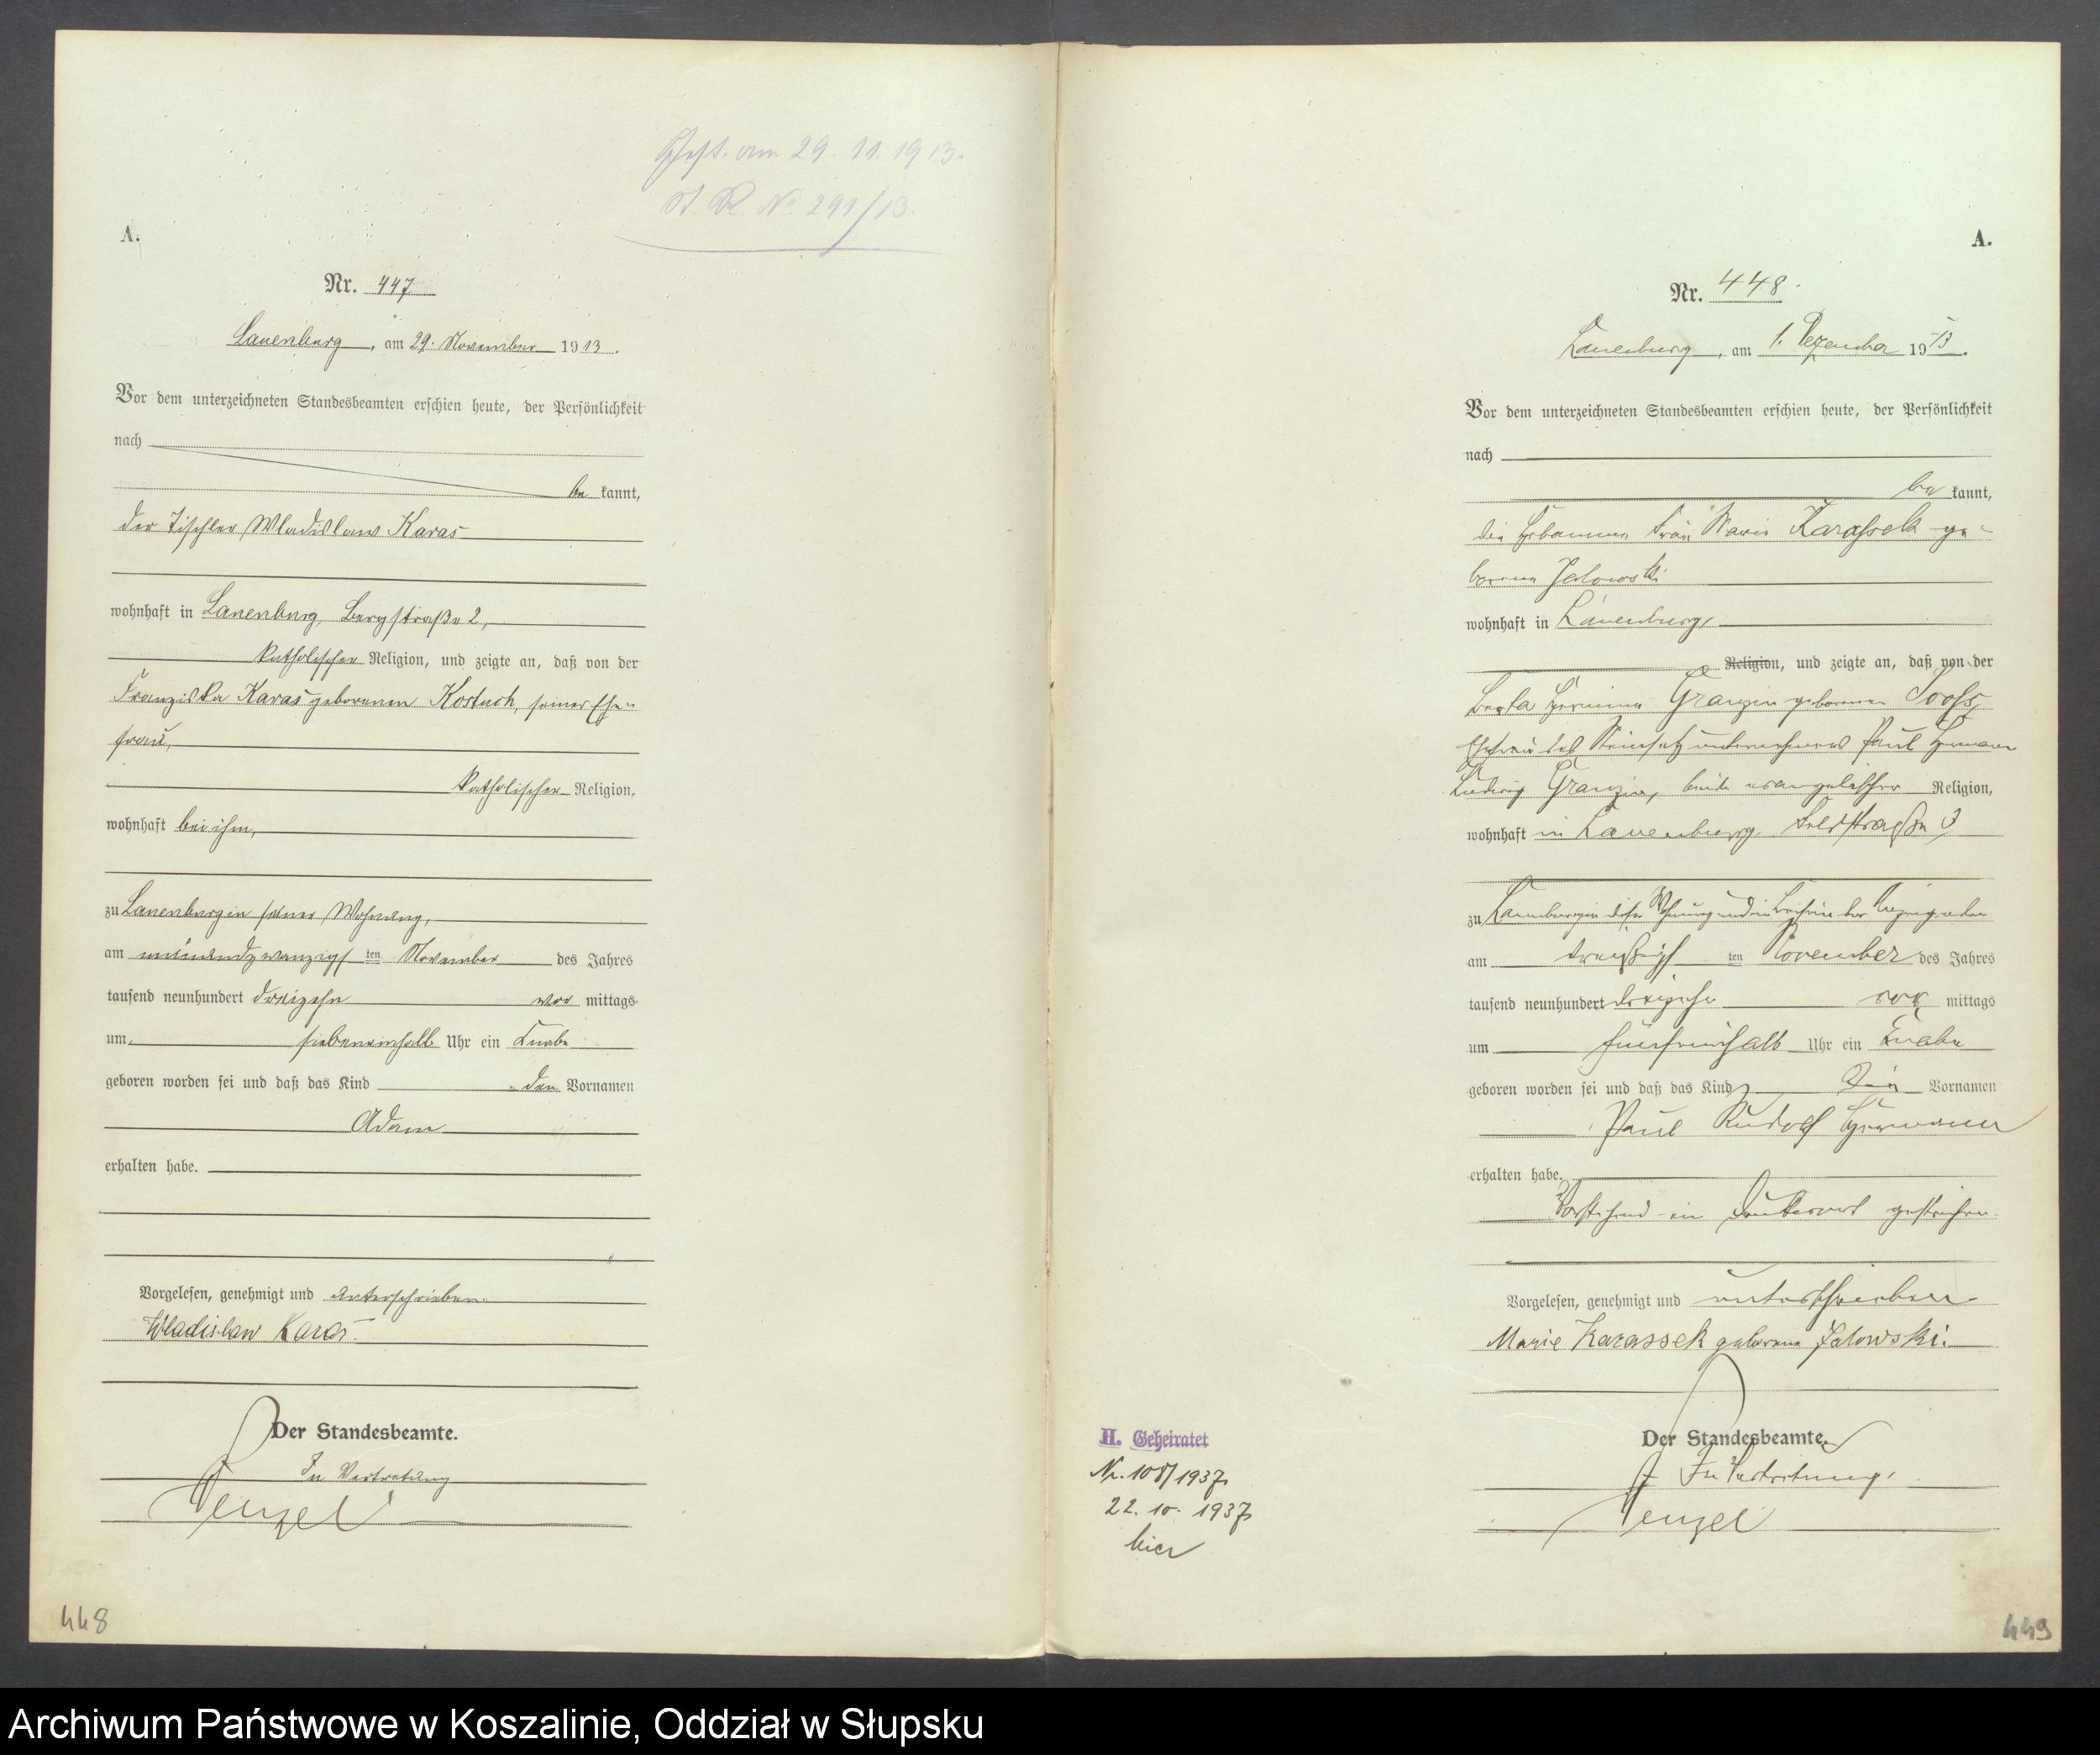 Gest. am 29. 11. 1913.
St. R. No 291/13.
A.
Nr. 447
Lauenburg, am 29. November 1913.
Vor dem unterzeichneten Standesbeamten erschien heute, der Persönlichkeit
nach
be kannt,
der Tischler Wladislaus Karas
wohnhaft in Lauenburg, Bergstraße 2,
katholischer Religion, und zeigte an, daß von der
Franziska Karas geborenen Kostuch, seiner Ehe-
frau,
katholischer Religion,
wohnhaft bei ihm,
zu Lauenburg in seiner Wohnung,
am neunundzwanzigsten November des Jahres
tausend neunhundert dreizehn vor mittags
um siebeneinhalb Uhr ein Knabe
geboren worden sei und daß das Kind den Vornamen
Adam
erhalten habe.
Vorgelesen, genehmigt und unterschrieben.
Wladislaw Karaś.
Der Standesbeamte.
In Vertretung
448
A.
Nr. 448.
Lauenburg, am 1. Dezember 1913.
Vor dem unterzeichneten Standesbeamten erschien heute, der Persönlichkeit
nach
be kannt,
die Hebamme Frau Marie Karassek ge-
borene Jalowski
wohnhaft in Lauenburg,
Religion, und zeigte an, daß von der
Berta Hermine Granzin geborenen
Ehefrau des Steinsetzunternehmers Paul Hermann
Ludwig Granzin, beide evangelischer Religion,
wohnhaft in Lauenburg,
zu Lauenburg in dieser Wohnung und in Beisein der Anzeigenden
am dreißigsten November des Jahres
tausend neunhundert dreizehn vor mittags
um fünfeinhalb Uhr ein Knabe
geboren worden sei und daß das Kind die Vornamen
Paul Rudolf Hermann
erhalten habe.
Vorstehend ein Druckwort gestrichen.
Vorgelesen, genehmigt und unterschrieben
Marie Karassek geborene Jalowski.
Der Standesbeamte.
In Vertretung,
H. Geheiratet
Nr. 108/1937
22. 10. 1937
hier
449
Archiwum Państwowe w Koszalinie, Oddział w Słupsku